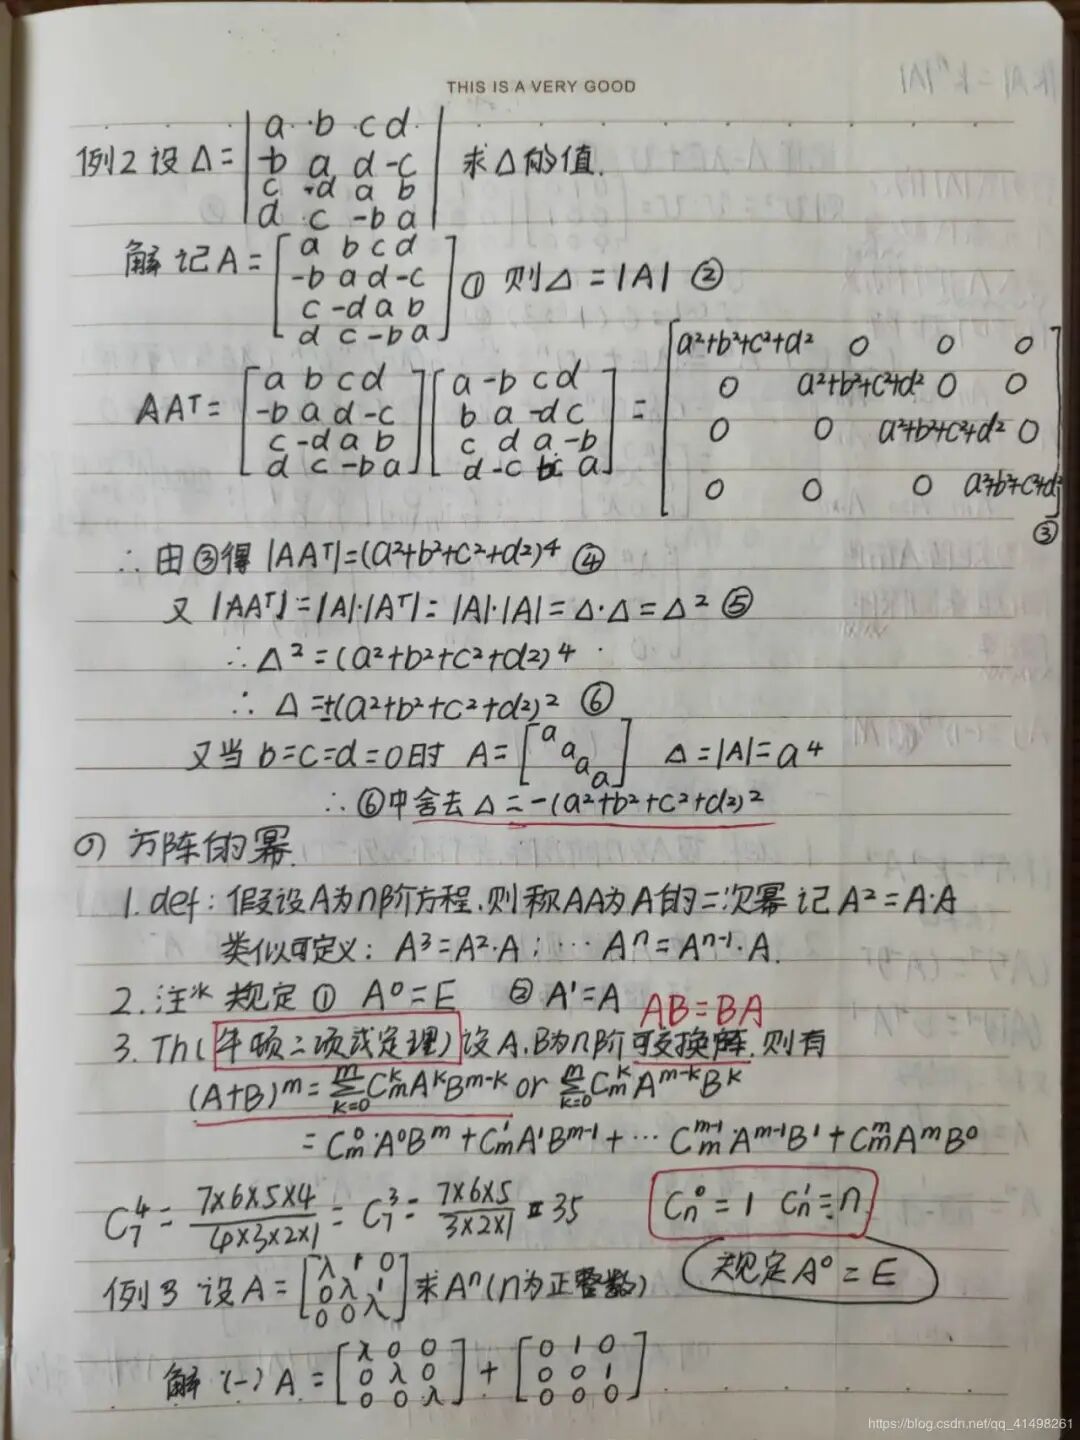 THIS IS A VERY GOOD
例2 设 Δ = | a b c d |
| -b a d -c | 求Δ的值.
| c -d a b |
| d c -b a |
解 记 A = [ a b c d ]
[ -b a d -c ] ① 则Δ = |A| ②
[ c -d a b ]
[ d c -b a ]
AAᵀ = [ a b c d ] [ a -b c d ] = [ a²+b²+c²+d² 0 0 0 ]
[ -b a d -c ] [ b a -d c ] [ 0 a²+b²+c²+d² 0 0 ]
[ c -d a b ] [ c d a -b ] [ 0 0 a²+b²+c²+d² 0 ]
[ d c -b a ] [ d -c b a ] [ 0 0 0 a²+b²+c²+d² ]
③
∴ 由③得 |AAᵀ| = (a²+b²+c²+d²)⁴ ④
又 |AAᵀ| = |A|·|Aᵀ| = |A|·|A| = Δ·Δ = Δ² ⑤
∴ Δ² = (a²+b²+c²+d²)⁴
∴ Δ = ±(a²+b²+c²+d²)² ⑥
又当 b=c=d=0时 A = [ a a a a ] Δ = |A| = a⁴
∴ ⑥中舍去 Δ = -(a²+b²+c²+d²)²
方阵的幂.
1. def: 假设A为n阶方程,则称AA为A的二次幂 记 A² = A·A
类似可定义: A³ = A²·A ; ··· Aⁿ = Aⁿ⁻¹·A.
2. 注* 规定 ① A⁰ = E ② A¹ = A AB = BA
3. Th (牛顿二项式定理) 设A.B为n阶可交换解.则有
(A+B)ᵐ = Σ_{k=0}^{m} C_m^k A^k B^{m-k} or Σ_{k=0}^{m} C_m^k A^{m-k} B^k
= C_m^0·A⁰Bᵐ + C_m^1 A¹B^{m-1} + ··· C_m^{m-1}·A^{m-1}B¹ + C_m^m AᵐB⁰
C_7^4 = 7×6×5×4 / 4×3×2×1 = C_7^3 = 7×6×5 / 3×2×1 = 35 C_n^0 = 1 C_n^1 = n
规定 A⁰ = E
例3 设 A = [ λ 1 0 ] 求Aⁿ (n为正整数)
[ 0 λ 1 ]
[ 0 0 λ ]
解 (一) A = [ λ 0 0 ] + [ 0 1 0 ]
[ 0 λ 0 ] [ 0 0 1 ]
[ 0 0 λ ] [ 0 0 0 ]
https://blog.csdn.net/qq_41498261